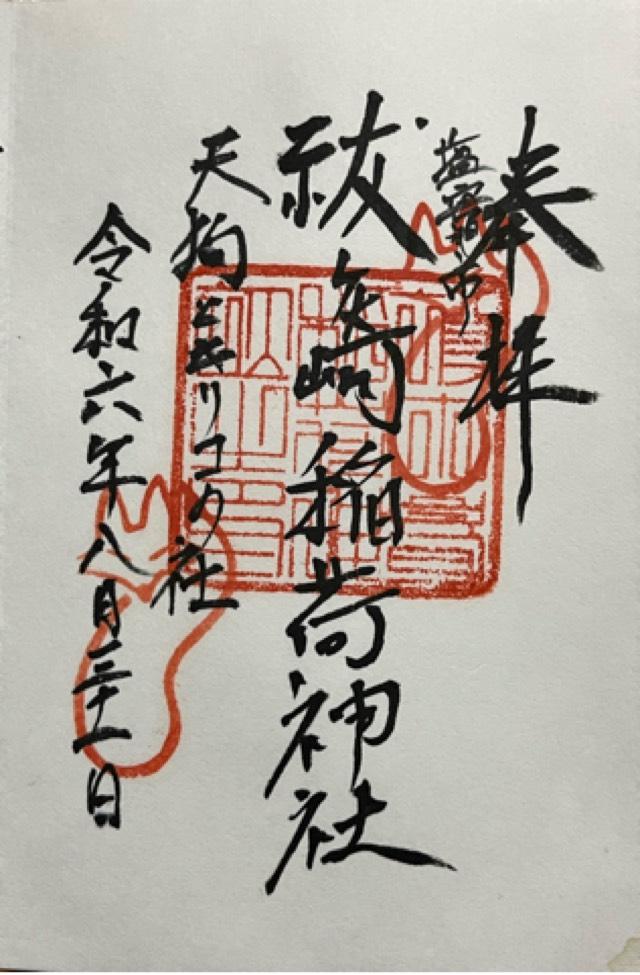 奉拝
塩竈市
祓ヶ崎稲荷神社
天狗とキリコク社
令和六年八月三十一日